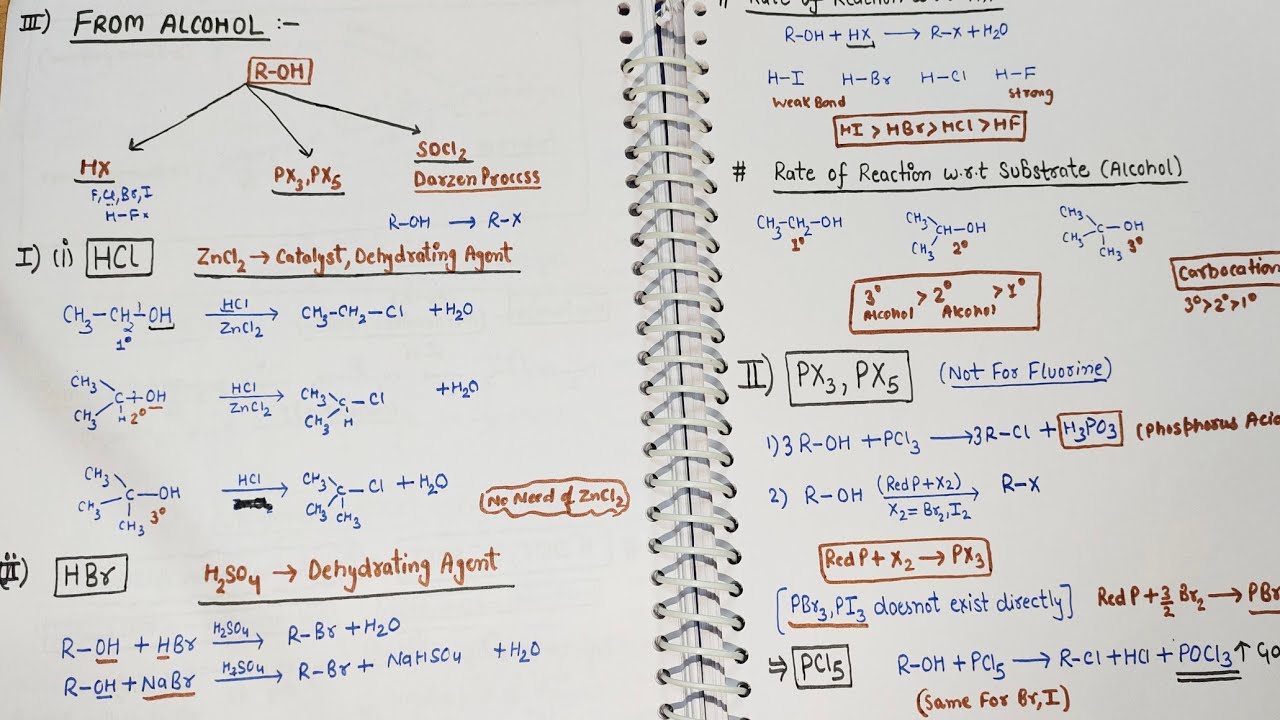 III) FROM ALCOHOL :-
R-OH
HX
F, Cl, Br, I
H-F ×
PX₃, PX₅
SOCl₂
Darzen Process
R-OH → R-X
I) (i) HCl ZnCl₂ → Catalyst, Dehydrating Agent
CH₃-CH₂-OH HCl ZnCl₂ → CH₃-CH₂-Cl + H₂O
1°
CH₃ CH₃ C-OH H 2° HCl ZnCl₂ → CH₃ CH₃ C-Cl H + H₂O
CH₃ CH₃ C-OH CH₃ 3° HCl → CH₃ CH₃ C-Cl CH₃ + H₂O
No Need of ZnCl₂
(ii) HBr H₂SO₄ → Dehydrating Agent
R-OH + HBr H₂SO₄ → R-Br + H₂O
R-OH + NaBr H₂SO₄ → R-Br + NaHSO₄ + H₂O
R-OH + HX → R-X + H₂O
H-I H-Br H-Cl H-F
Weak Bond Strong
HI > HBr > HCl > HF
# Rate of Reaction w.r.t Substrate (Alcohol)
CH₃-CH₂-OH 1° CH₃ CH₃ CH-OH 2° CH₃ CH₃ CH₃ C-OH 3°
3° Alcohol > 2° Alcohol > 1°
Carbocation
3°>2°>1°
II) PX₃, PX₅ (Not For Fluorine)
1) 3R-OH + PCl₃ → 3R-Cl + H₃PO₃ (Phosphorus Acid
2) R-OH (Red P + X₂) X₂ = Br₂, I₂ → R-X
Red P + X₂ → PX₃
[PBr₃, PI₃ doesnot exist directly] Red P + 3/2 Br₂ → PBr
⇒ PCl₅ R-OH + PCl₅ → R-Cl + HCl + POCl₃ ↑
(Same For Br, I)